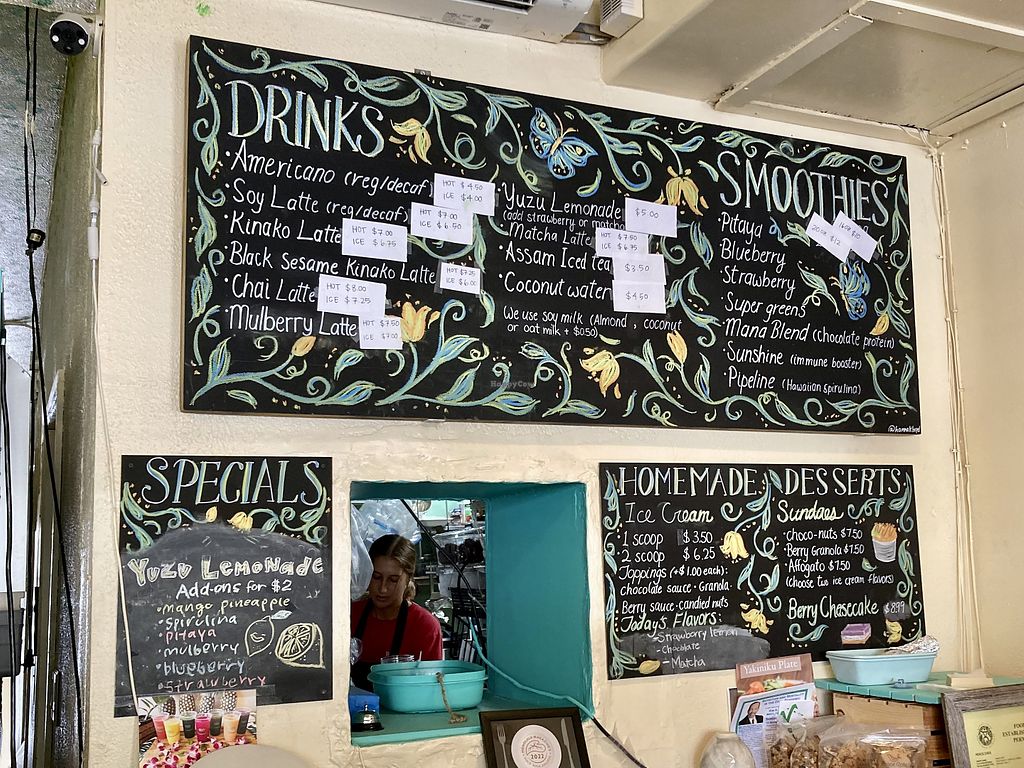 DRINKS
• Americano (reg/decaf)
HOT $4.50
ICE $4.00
• Soy Latte (reg/decaf)
HOT $7.00
ICE $6.50
• Kinako Latte
HOT $7.00
ICE $6.75
• Black Sesame Kinako Latte
HOT $7.25
ICE $6.00
• Chai Latte
HOT $8.00
ICE $7.25
• Mulberry Latte
HOT $7.50
ICE $7.00
• Yuzu Lemonade
(add strawberry or matcha)
$5.00
Matcha Latte
HOT $7.50
ICE $6.75
• Assam Iced Tea
$3.50
• Coconut water
$4.50
We use soy milk (Almond, coconut
or oat milk + $0.50)
SMOOTHIES
20oz $12
16oz $10
• Pitaya
• Blueberry
• Strawberry
• Super greens
• Mana Blend (chocolate protein)
• Sunshine (immune booster)
• Pipeline (Hawaiian spirulina)
HappyCow
SPECIALS
YUZU LEMONADE
Add-ons for $2
• mango pineapple
• spirulina
• pitaya
• mulberry
• blueberry
• strawberry
HOMEMADE DESSERTS
Ice Cream
• 1 scoop $3.50
2 scoop $6.25
Toppings (+$1.00 each):
chocolate sauce • Granola
Berry sauce • candied nuts
Today's Flavors:
- Strawberry lemon
- Chocolate
- Matcha
Sundaes
• Choco-nuts $7.50
• Berry Granola $7.50
• Affogato $7.50
(choose two ice cream flavors)
Berry Chasecake $8.99
Yakiniku Plate
2022